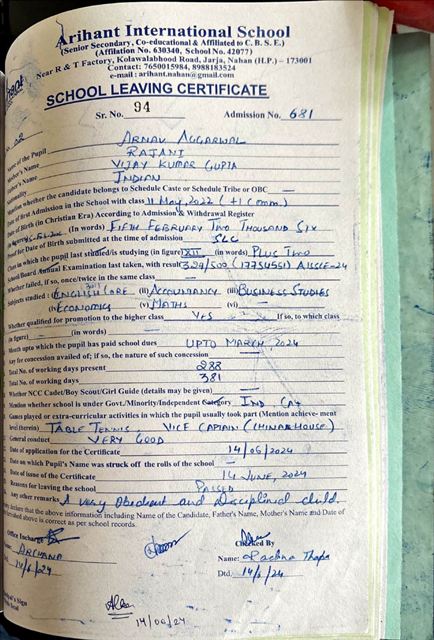 Arihant International School
(Senior Secondary, Co-educational & Affiliated to C. B. S. E.)
(Affilation No. 630340, School No. 42077)
Near R & T Factory, Kolawalabhood Road, Jarja, Nahan (H.P.) – 173001
Contact: 7650015984, 8988183524
e-mail : arihant.nahan@gmail.com
SCHOOL LEAVING CERTIFICATE
Sr. No. 94 Admission No. 681
Name of the Pupil ARNAV AGGARWAL
Mother's Name RAJANI
Father's Name VIJAY KUMAR GUPTA
Nationality INDIAN
Mention whether the candidate belongs to Schedule Caste or Schedule Tribe or OBC —
Date of first Admission in the School with class 11 May, 2022 (+1 Comm.)
Date of Birth (in Christian Era) According to Admission & Withdrawal Register
FIFTH FEBRUARY TWO THOUSAND SIX
Proof for Date of Birth submitted at the time of admission SLC
Class in which the pupil last studied/is studying (in figure) XII (in words) PLUS TWO
School Board Annual Examination last taken, with result 329/500 (17754551) AISSCE-24
Whether failed, if so, once/twice in the same class —
Subjects studied : (i) ENGLISH CORE (ii) ACCOUNTANCY (iii) BUSINESS STUDIES
(iv) ECONOMICS (v) MATHS (vi) —
Whether qualified for promotion to the higher class YES If so, to which class
(in figure) — (in words) —
Month upto which the pupil has paid school dues UPTO MARCH, 2024
Any fee concession availed of; if so, the nature of such concession —
Total No. of working days present 288
Total No. of working days 381
Whether NCC Cadet/Boy Scout/Girl Guide (details may be given) —
Mention whether school is under Govt./Minority/Independent Category IND CAT
Games played or extra-curricular activities in which the pupil usually took part (Mention achieve- ment
level therein) TABLE TENNIS, VICE CAPTAIN (CHINAR HOUSE)
General conduct VERY GOOD
Date of application for the Certificate 14/06/2024
Date on which Pupil's Name was struck off the rolls of the school —
Date of issue of the Certificate 14 JUNE, 2024
Reasons for leaving the school PASSED
Any other remarks A very Obedient and disciplined child.
declare that the above information including Name of the Candidate, Father's Name, Mother's Name and Date of
above is correct as per school records.
Office Incharge Checked By
Name: ARCHANA Name: Rachna Thapa
14/6/24 Dtd. 14/6/24
14/06/24